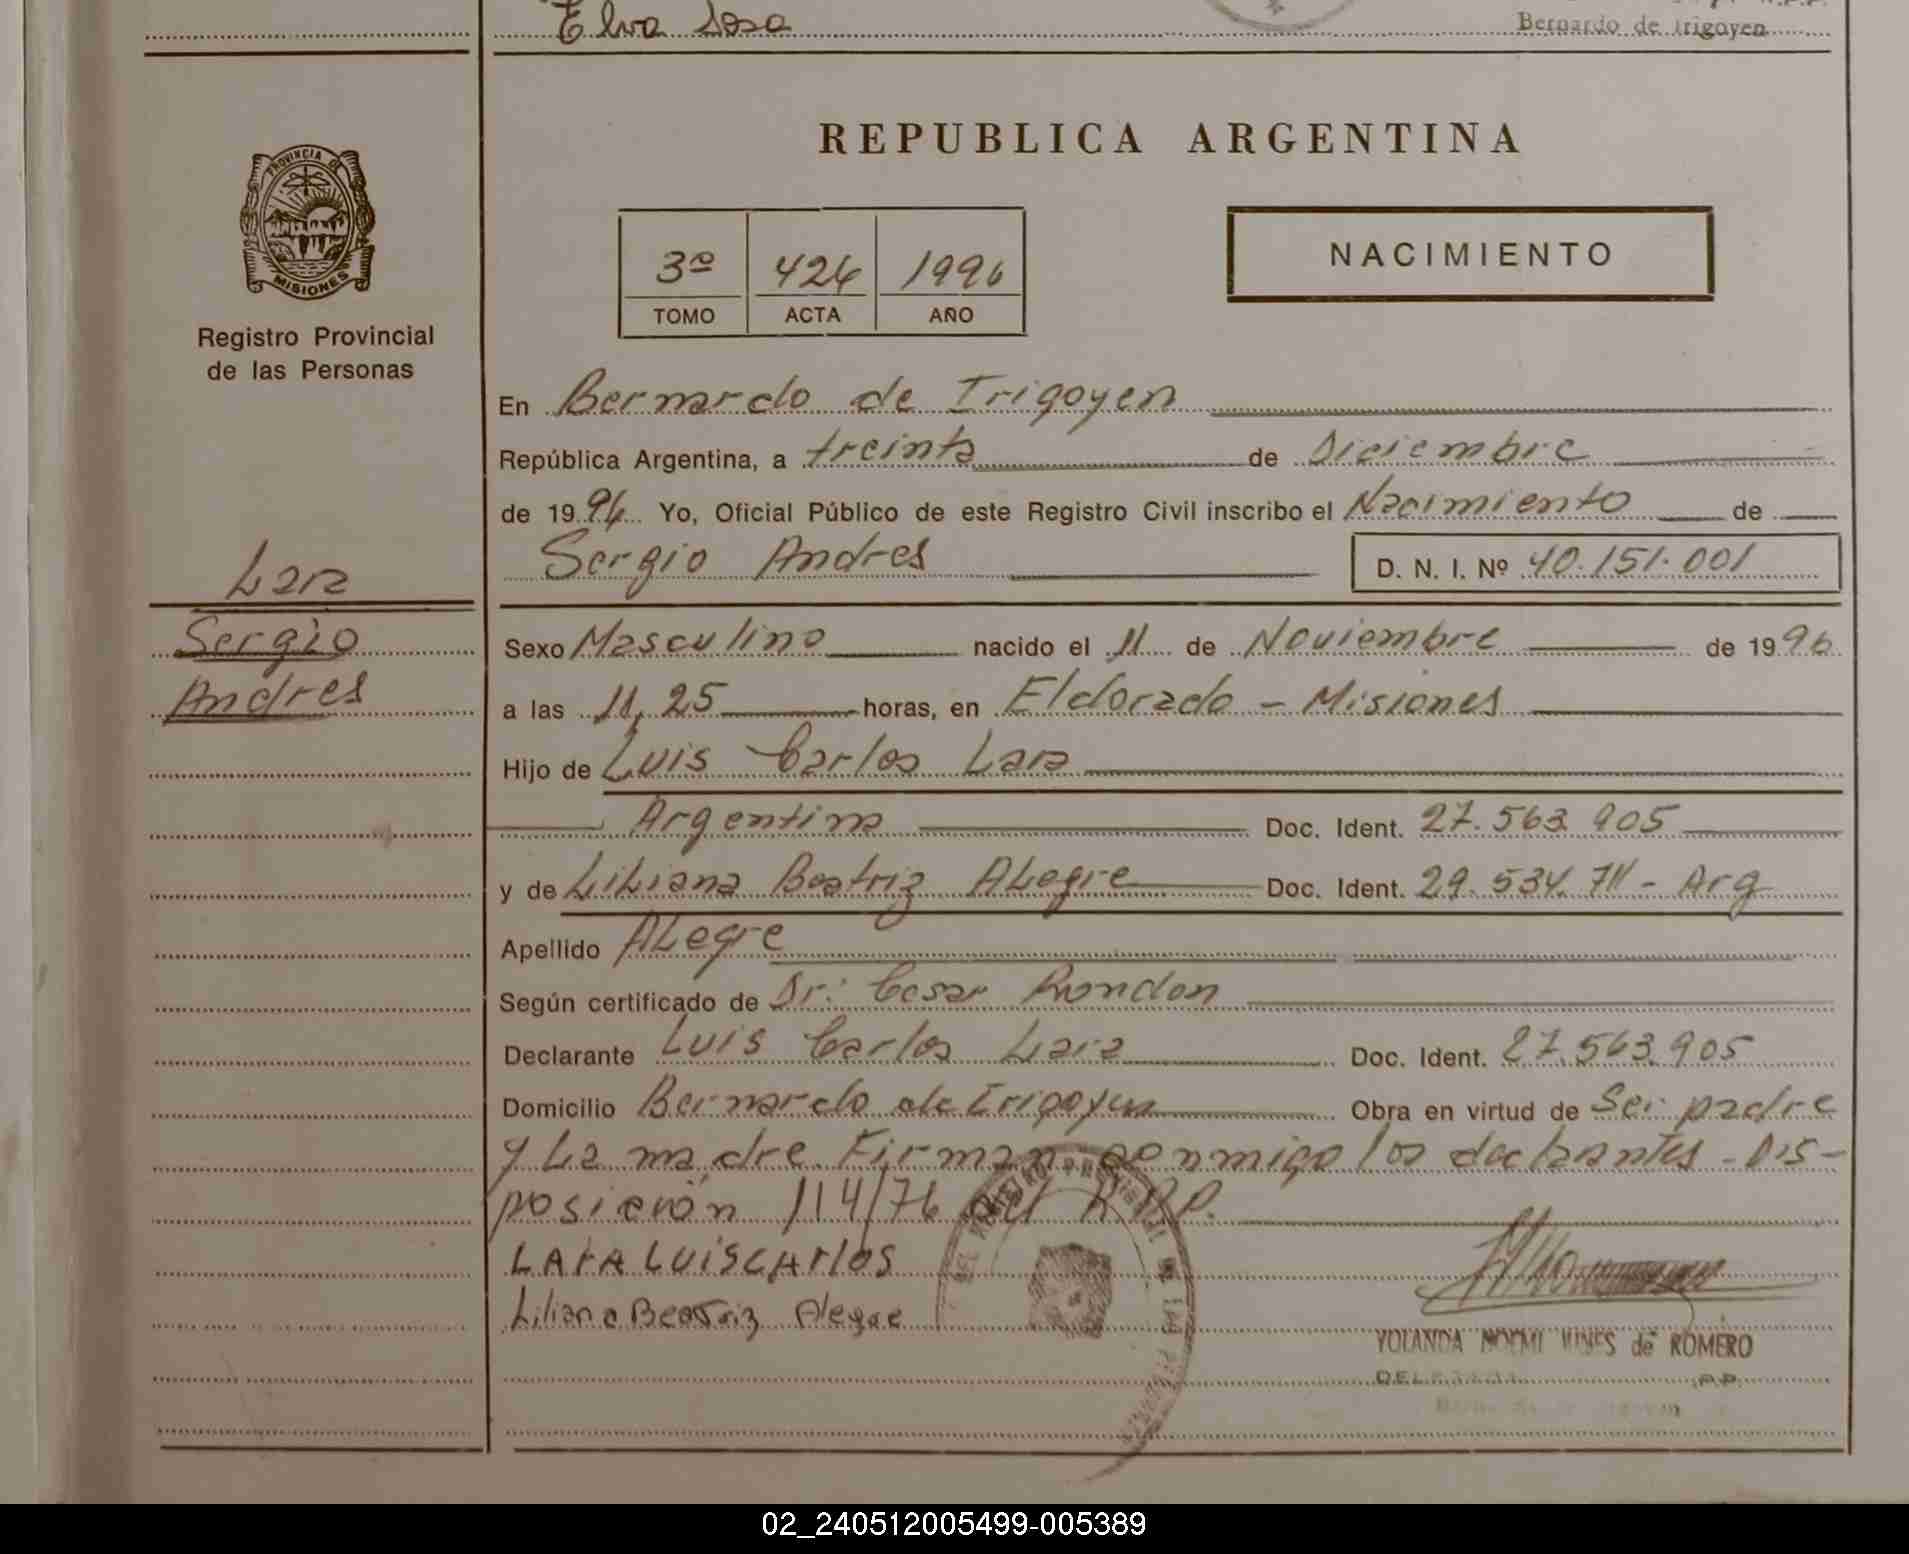 Elva Sosa
Bernardo de Irigoyen
REPUBLICA ARGENTINA
PROVINCIA DE
MISIONES
Registro Provincial
de las Personas
3º 424 1996
TOMO ACTA AÑO
NACIMIENTO
En Bernardo de Irigoyen
República Argentina, a treinta de Diciembre
de 1996 Yo, Oficial Público de este Registro Civil inscribo el Nacimiento de
Sergio Andres D. N. I. Nº 40.151.001
Lara
Sergio
Andres
Sexo Masculino nacido el 11 de Noviembre de 1996
a las 11,25 horas, en Eldorado - Misiones
Hijo de Luis Carlos Lara
Argentino Doc. Ident. 27.563.905
y de Liliana Beatriz Alegre Doc. Ident. 29.534.711 - Arg
Apellido Alegre
Según certificado de Dr: Cesar Rondon
Declarante Luis Carlos Lara Doc. Ident. 27.563.905
Domicilio Bernardo de Irigoyen Obra en virtud de Ser padre
y La madre Firman conmigo los declarantes - Dis-
posición 114/76 del R.P.P.
LArA LuiscArlos
Liliana Beatriz Alegre
YOLANDA NOEMI de ROMERO
02_240512005499-005389